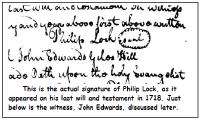 last will and testament In witness
y and year above first above written
Philip Lock seal
John Edwards Gyles Hill
ade Oath upon the holy Evangelist
This is the actual signature of Philip Lock, as it
appeared on his last will and testament in 1718. Just
below is the witness, John Edwards, discussed later.